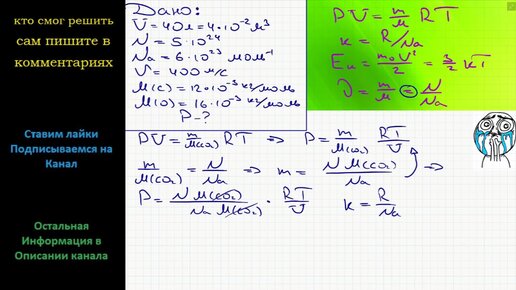 кто смог решить
сам пишите в
комментариях
Ставим лайки
Подписываемся на
Канал
Остальная
Информация в
Описании канала
Дано:
V = 40л = 4·10⁻² м³
N = 5·10²⁴
Nа = 6·10²³ моль⁻¹
V = 400 м/с
M(c) = 12·10⁻³ кг/моль
M(o) = 16·10⁻³ кг/моль
P - ?
PV = m/M RT
k = R/Nа
Eк = m₀V²/2 = 3/2 kT
ν = m/M = N/Nа
PV = m/M(co₂) RT => P = m/M(co₂) RT/V
m/M(co₂) = N/Nа => m = N M(co₂)/Nа =>
P = N M(co₂)/Nа M(co₂) · RT/V k = R/Nа